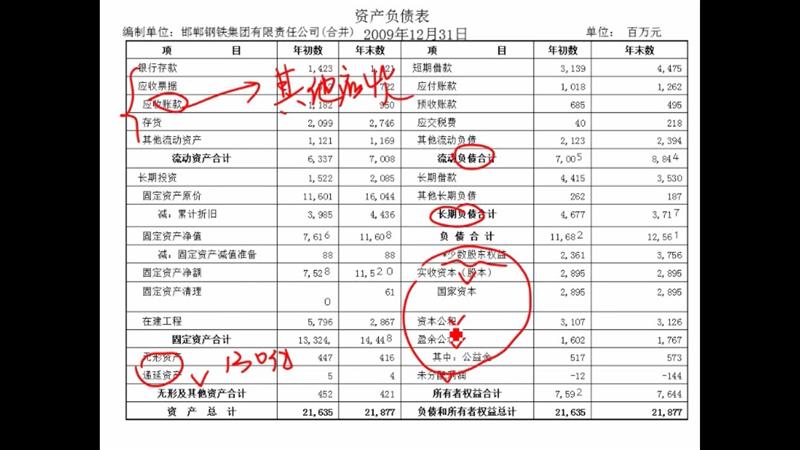 资产负债表
编制单位：邯郸钢铁集团有限责任公司(合并) 2009年12月31日 单位：百万元
项 目 年初数 年末数 项 目 年初数 年末数
银行存款 1,423 短期借款 3,139 4,475
应收票据 722 应付账款 1,018 1,262
应收账款 1,182 950 预收账款 685 495
存货 2,099 2,746 应交税费 40 218
其他流动资产 1,121 1,169 其他流动负债 2,123 2,394
流动资产合计 6,337 7,008 流动负债合计 7,005 8,844
长期投资 1,522 2,085 长期借款 4,415 3,530
固定资产原价 11,601 16,044 其他长期负债 262 187
减：累计折旧 3,985 4,436 长期负债合计 4,677 3,717
固定资产净值 7,616 11,608 负债合计 11,682 12,561
减：固定资产减值准备 88 88 *少数股东权益 2,361 3,756
固定资产净额 7,528 11,520 实收资本（股本） 2,895 2,895
固定资产清理 0 61 国家资本 2,895 2,895
在建工程 5,796 2,867 资本公积 3,107 3,126
固定资产合计 13,324 14,448 盈余公 1,602 1,767
无形资产 447 416 其中：公益金 517 573
递延资产 5 4 未分配利润 -12 -144
无形及其他资产合计 452 421 所有者权益合计 7,592 7,644
资产总计 21,635 21,877 负债和所有者权益总计 21,635 21,877
其他应收